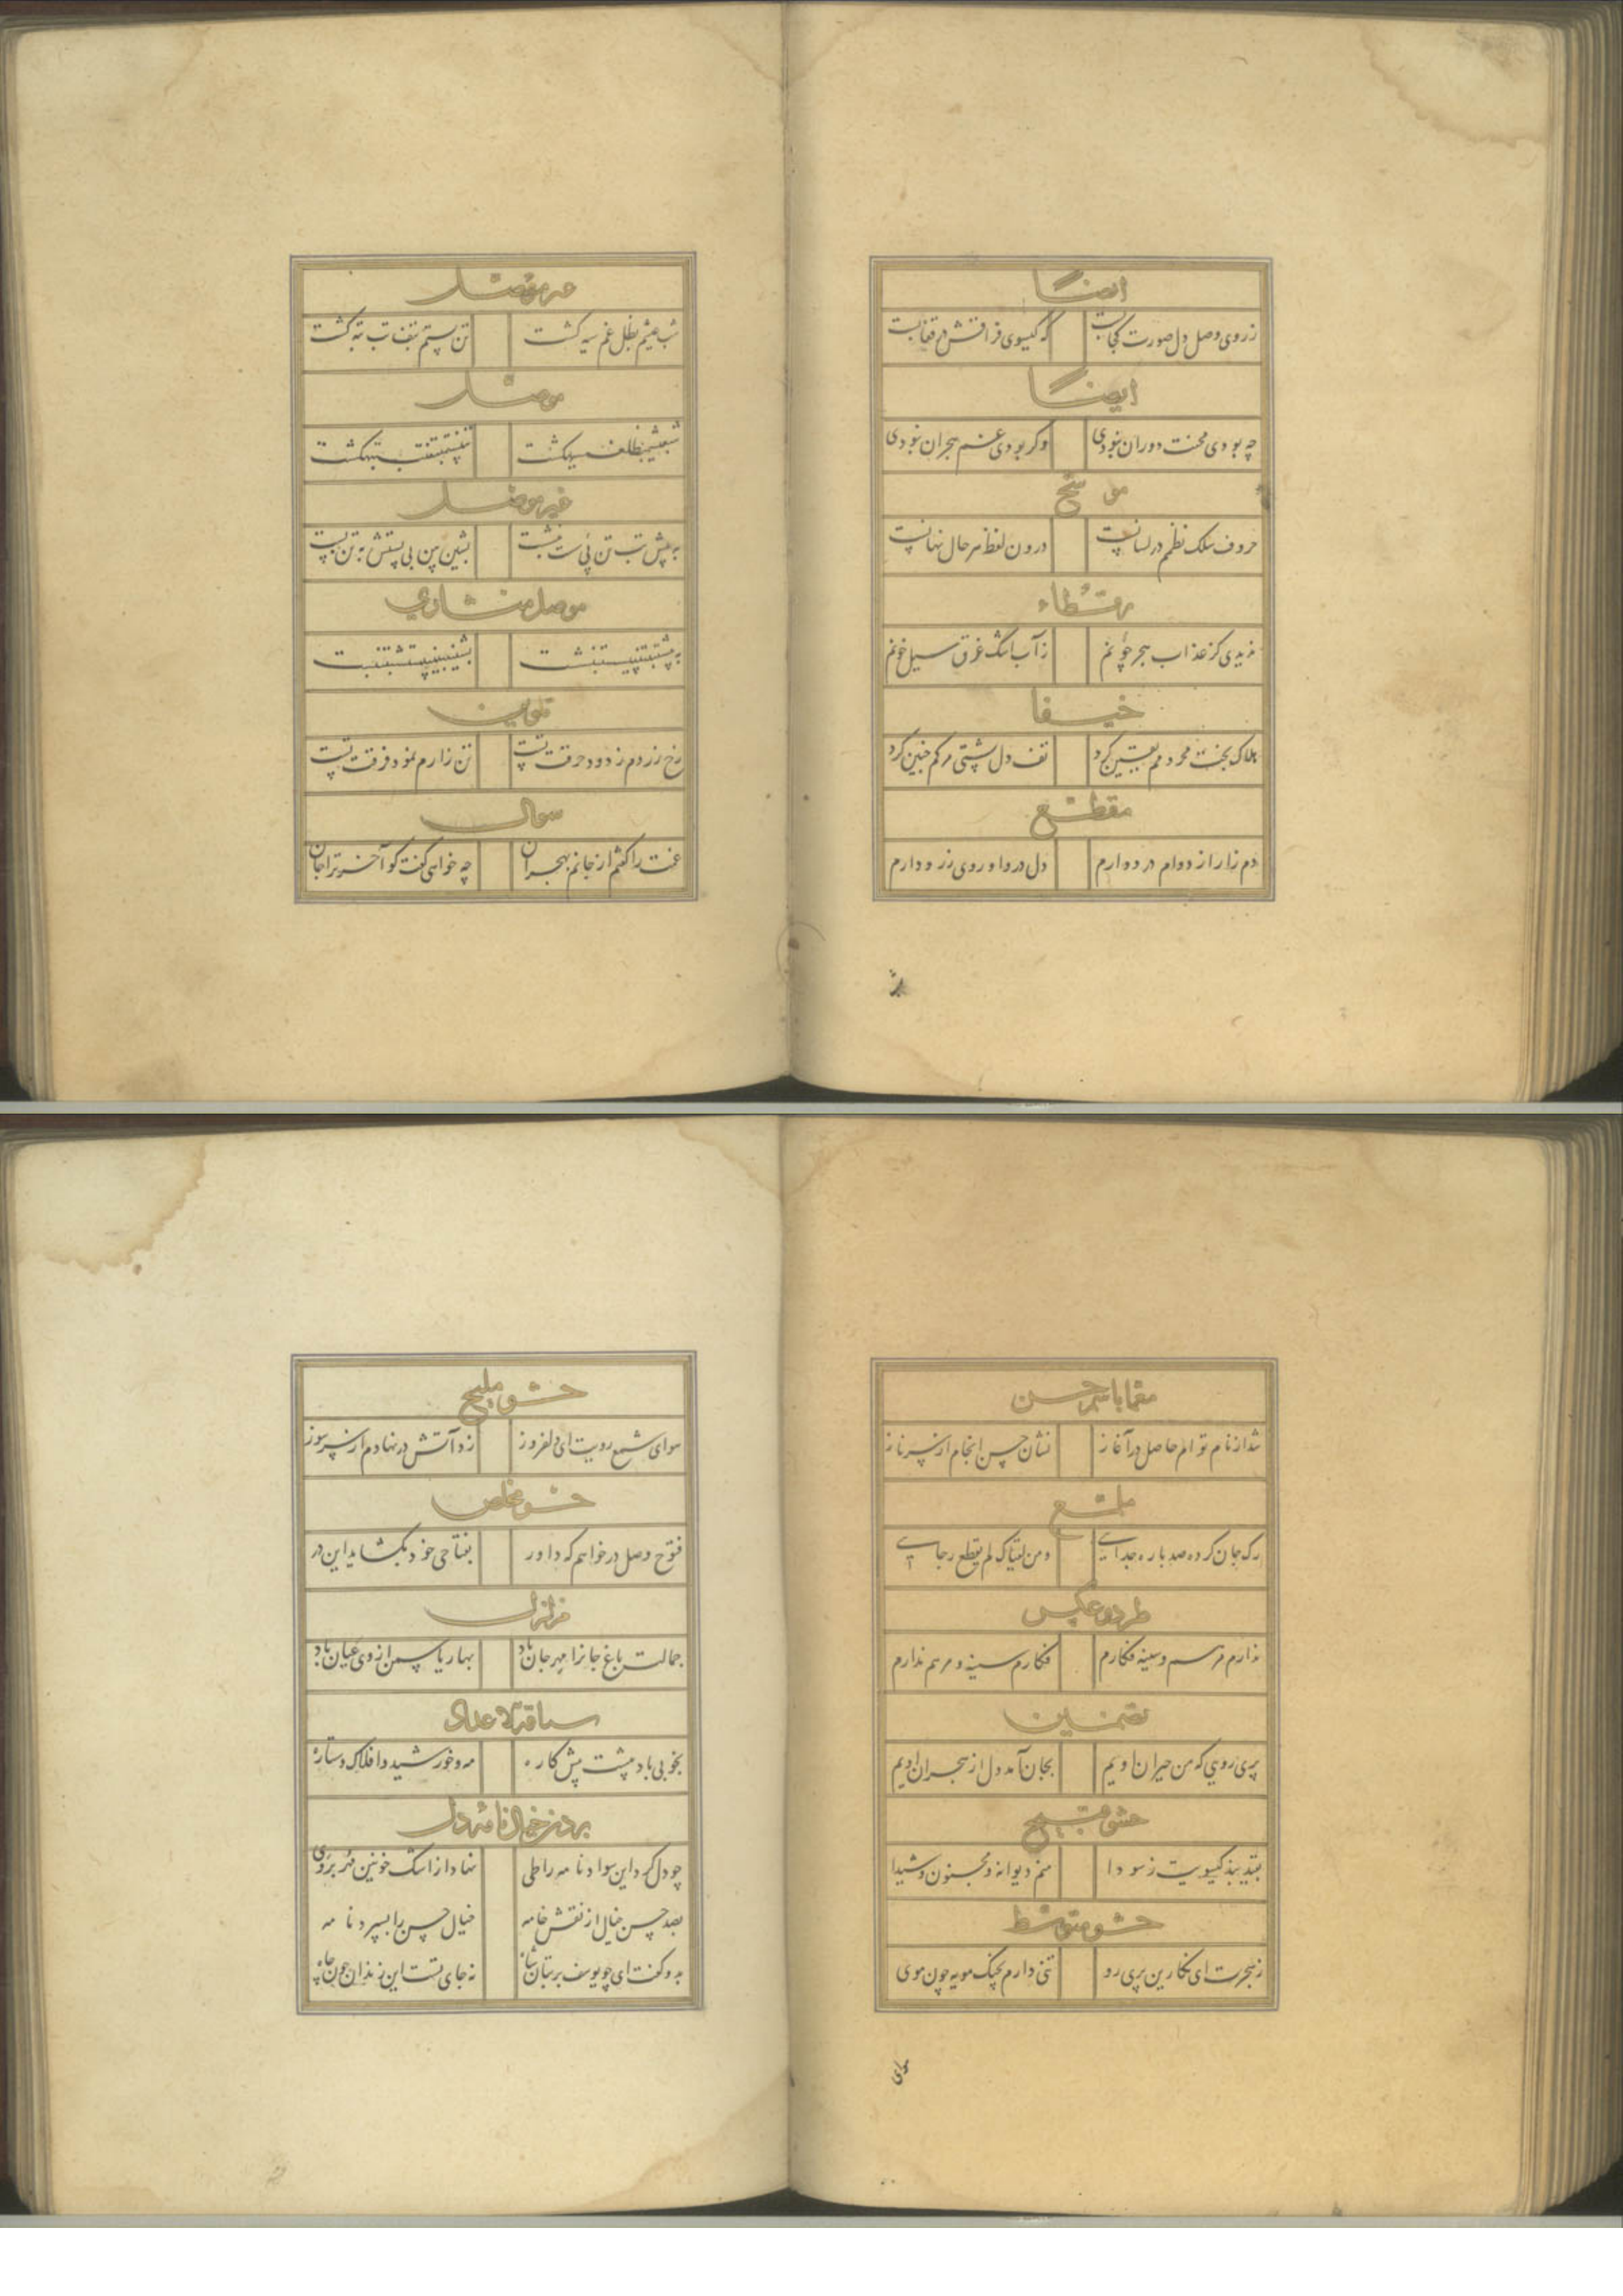 ایضا
ز روی وصل دل صورت کجا بست که گیسوی فراقش در قفا بست
ایضا
چه بودی محنت دوران نبودی وگر بودی غم هجران نبودی
موشح
حروف سلک نظمم در لسانست درون لفظ سر حال نهانست
رقطاء
ندیدی کز عذاب هجر چونم ز آب اشک غرق سیل خونم
خیفا
هلاک بخت محرومم یقین کرد تف دل پشتی مرکم چنین کرد
مقطع
دم زار از دوام درد دارم دل دروا و روی زرد دارم
غیر موصل
شب عیشم بظل غم سیه گشت تن پستم بتف تب تبه گشت
موصل
شبعیشمبظلغمسیهگشت تنپستمبتفتبتبهگشت
غیر موصل
به پیش تب تن پی ست بنشست بشین بین بی پستش به تن بست
موصل منشاری
تلوین
رخ زردم ز دود حرقت تست تن زارم نمود فرقت تست
سوال
غمت را گفتم از جانم بهجران چه خواهی گفت گو آخر ترا جان
معما باسم حسن
شد از نام توام حاصل در آغاز نشان حسن انجام از سر ناز
ملمع
رگ جان کرده صد باره جدایی و من لقیاک لم یقطع رجایی
طرد و عکس
ندارم مرهم و سینه فکارم فکارم سینه و مرهم ندارم
تضمین
پری رویی که من حیران اویم بجان آمد دل از هجران اویم
حشو قبیح
بقید بند گیسویت ز سودا منم دیوانه و مجنون و شیدا
حشو متوسط
ز هجرت ای نگارین پری رو تنی دارم بچنگ مویه چون موی
حشو ملیح
هوای شمع رویت ای دلفروز زد آتش در نهادم از سر سوز
حشو مخلص
فتوح وصل در خواهم که داور بفتاحی خود بگشاید این در
مزلزل
جمالت باغ جانرا مهرجان باد بهار یاسمن از وی عیان باد
سیاقة الاعداد
بخوبی باد پیشت پیش کاره مه و خورشید و افلاک و ستاره
بردن خیال نامه دل
چو دل کرد این سواد نامه را طی نهاد از اشک خونین مهر بر وی
بصد حسن خیال از نقش خامه خیال حسن را بسپرد نامه
بدو گفت ای چو یوسف بر بتان شاه نه جای تست این زندان چون چاه